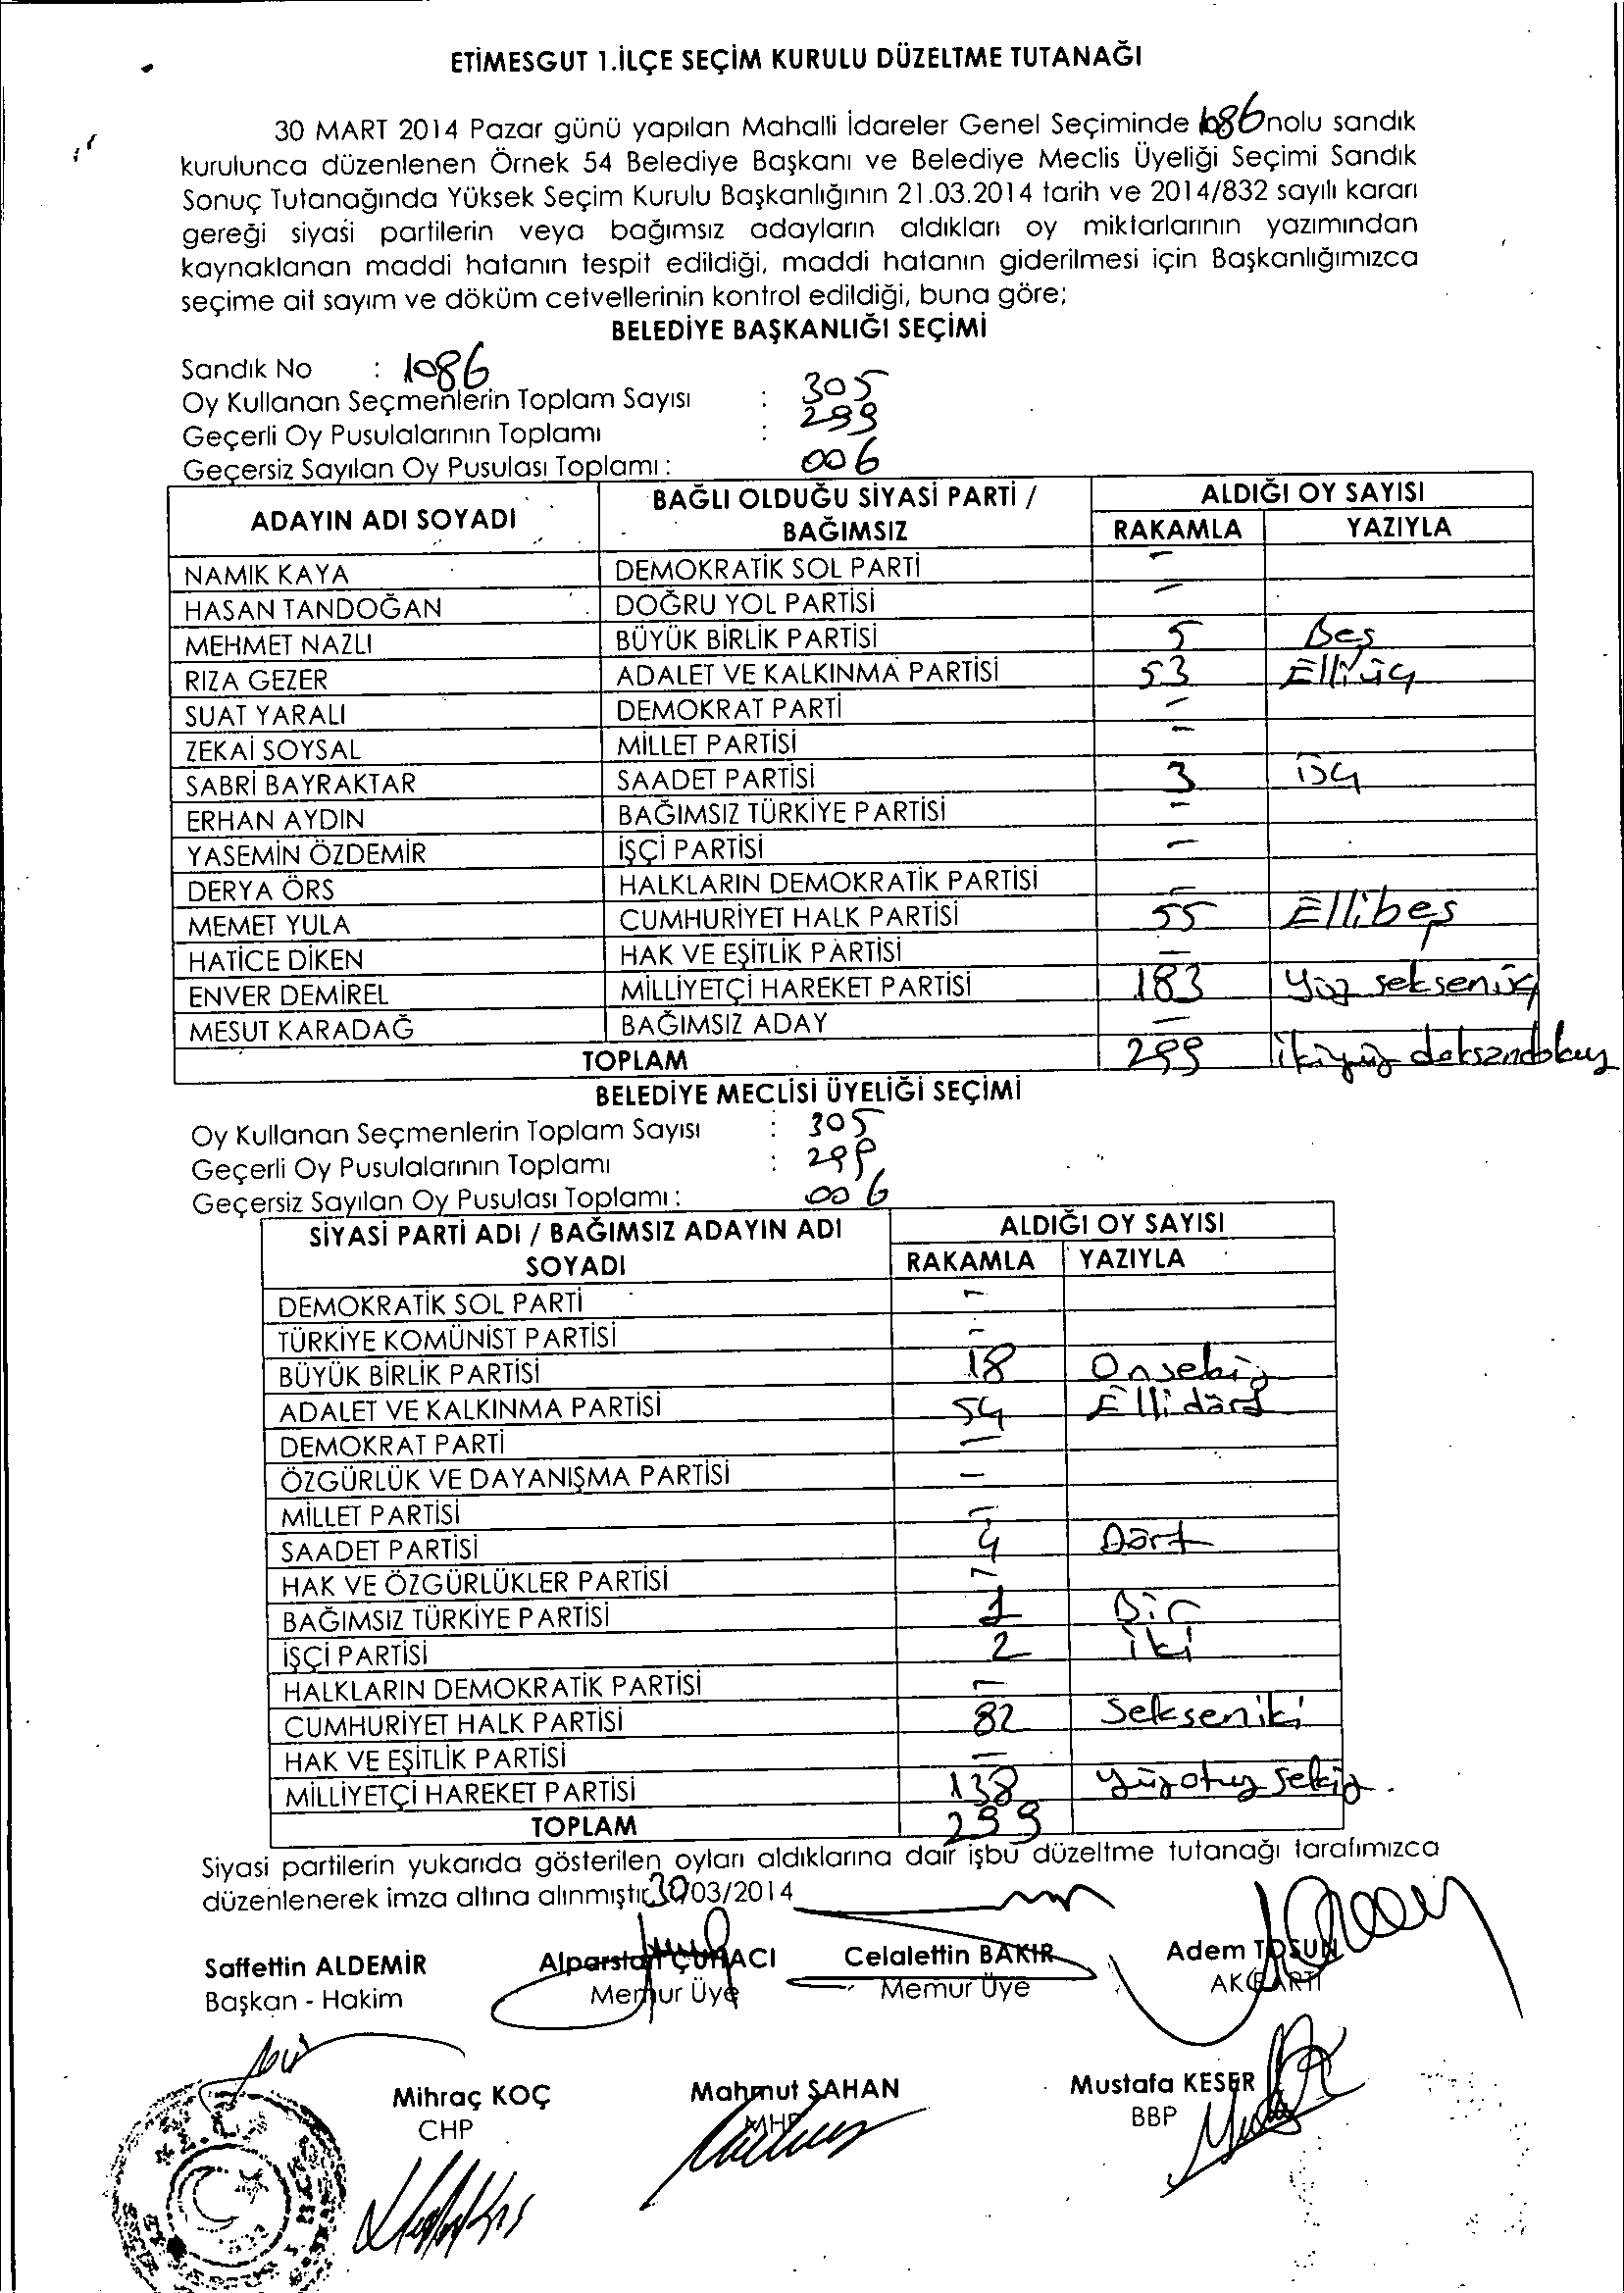 ETİMESGUT 1.İLÇE SEÇİM KURULU DÜZELTME TUTANAĞI
30 MART 2014 Pazar günü yapılan Mahalli İdareler Genel Seçiminde 1086 nolu sandık
kurulunca düzenlenen Örnek 54 Belediye Başkanı ve Belediye Meclis Üyeliği Seçimi Sandık
Sonuç Tutanağında Yüksek Seçim Kurulu Başkanlığının 21.03.2014 tarih ve 2014/832 sayılı kararı
gereği siyasi partilerin veya bağımsız adayların aldıkları oy miktarlarının yazımından
kaynaklanan maddi hatanın tespit edildiği, maddi hatanın giderilmesi için Başkanlığımızca
seçime ait sayım ve döküm cetvellerinin kontrol edildiği, buna göre;
BELEDİYE BAŞKANLIĞI SEÇİMİ
Sandık No : 1086
Oy Kullanan Seçmenlerin Toplam Sayısı : 305
Geçerli Oy Pusulalarının Toplamı : 299
Geçersiz Sayılan Oy Pusulası Toplamı : 006
ADAYIN ADI SOYADI BAĞLI OLDUĞU SİYASİ PARTİ / BAĞIMSIZ ALDIĞI OY SAYISI
RAKAMLA YAZIYLA
NAMIK KAYA DEMOKRATİK SOL PARTİ -
HASAN TANDOĞAN DOĞRU YOL PARTİSİ -
MEHMET NAZLI BÜYÜK BİRLİK PARTİSİ 5 Beş
RIZA GEZER ADALET VE KALKINMA PARTİSİ 53 Elliüç
SUAT YARALI DEMOKRAT PARTİ -
ZEKAİ SOYSAL MİLLET PARTİSİ -
SABRİ BAYRAKTAR SAADET PARTİSİ 3 üç
ERHAN AYDIN BAĞIMSIZ TÜRKİYE PARTİSİ -
YASEMİN ÖZDEMİR İŞÇİ PARTİSİ -
DERYA ÖRS HALKLARIN DEMOKRATİK PARTİSİ -
MEMET YULA CUMHURİYET HALK PARTİSİ 55 Ellibeş
HATİCE DİKEN HAK VE EŞİTLİK PARTİSİ -
ENVER DEMİREL MİLLİYETÇİ HAREKET PARTİSİ 183 Yüz seksenüç
MESUT KARADAĞ BAĞIMSIZ ADAY -
TOPLAM 299 ikiyüz doksandokuz
BELEDİYE MECLİSİ ÜYELİĞİ SEÇİMİ
Oy Kullanan Seçmenlerin Toplam Sayısı : 305
Geçerli Oy Pusulalarının Toplamı : 299
Geçersiz Sayılan Oy Pusulası Toplamı : 006
SİYASİ PARTİ ADI / BAĞIMSIZ ADAYIN ADI SOYADI ALDIĞI OY SAYISI
RAKAMLA YAZIYLA
DEMOKRATİK SOL PARTİ -
TÜRKİYE KOMÜNİST PARTİSİ -
BÜYÜK BİRLİK PARTİSİ 18 Onsekiz
ADALET VE KALKINMA PARTİSİ 54 Ellidört
DEMOKRAT PARTİ -
ÖZGÜRLÜK VE DAYANIŞMA PARTİSİ -
MİLLET PARTİSİ -
SAADET PARTİSİ 4 Dört
HAK VE ÖZGÜRLÜKLER PARTİSİ -
BAĞIMSIZ TÜRKİYE PARTİSİ 1 Bir
İŞÇİ PARTİSİ 2 iki
HALKLARIN DEMOKRATİK PARTİSİ -
CUMHURİYET HALK PARTİSİ 82 Sekseniki
HAK VE EŞİTLİK PARTİSİ -
MİLLİYETÇİ HAREKET PARTİSİ 138 Yüzotuz sekiz.
TOPLAM 299
Siyasi partilerin yukarıda gösterilen oyları aldıklarına dair işbu düzeltme tutanağı tarafımızca
düzenlenerek imza altına alınmıştır 30/03/2014
Saffettin ALDEMİR Alparslan ÇUMACI Celalettin BAKIR Adem TOSUN
Başkan - Hakim Memur Üye Memur Üye AK PARTİ
Mihraç KOÇ Mahmut ŞAHAN Mustafa KESER
CHP MHP BBP